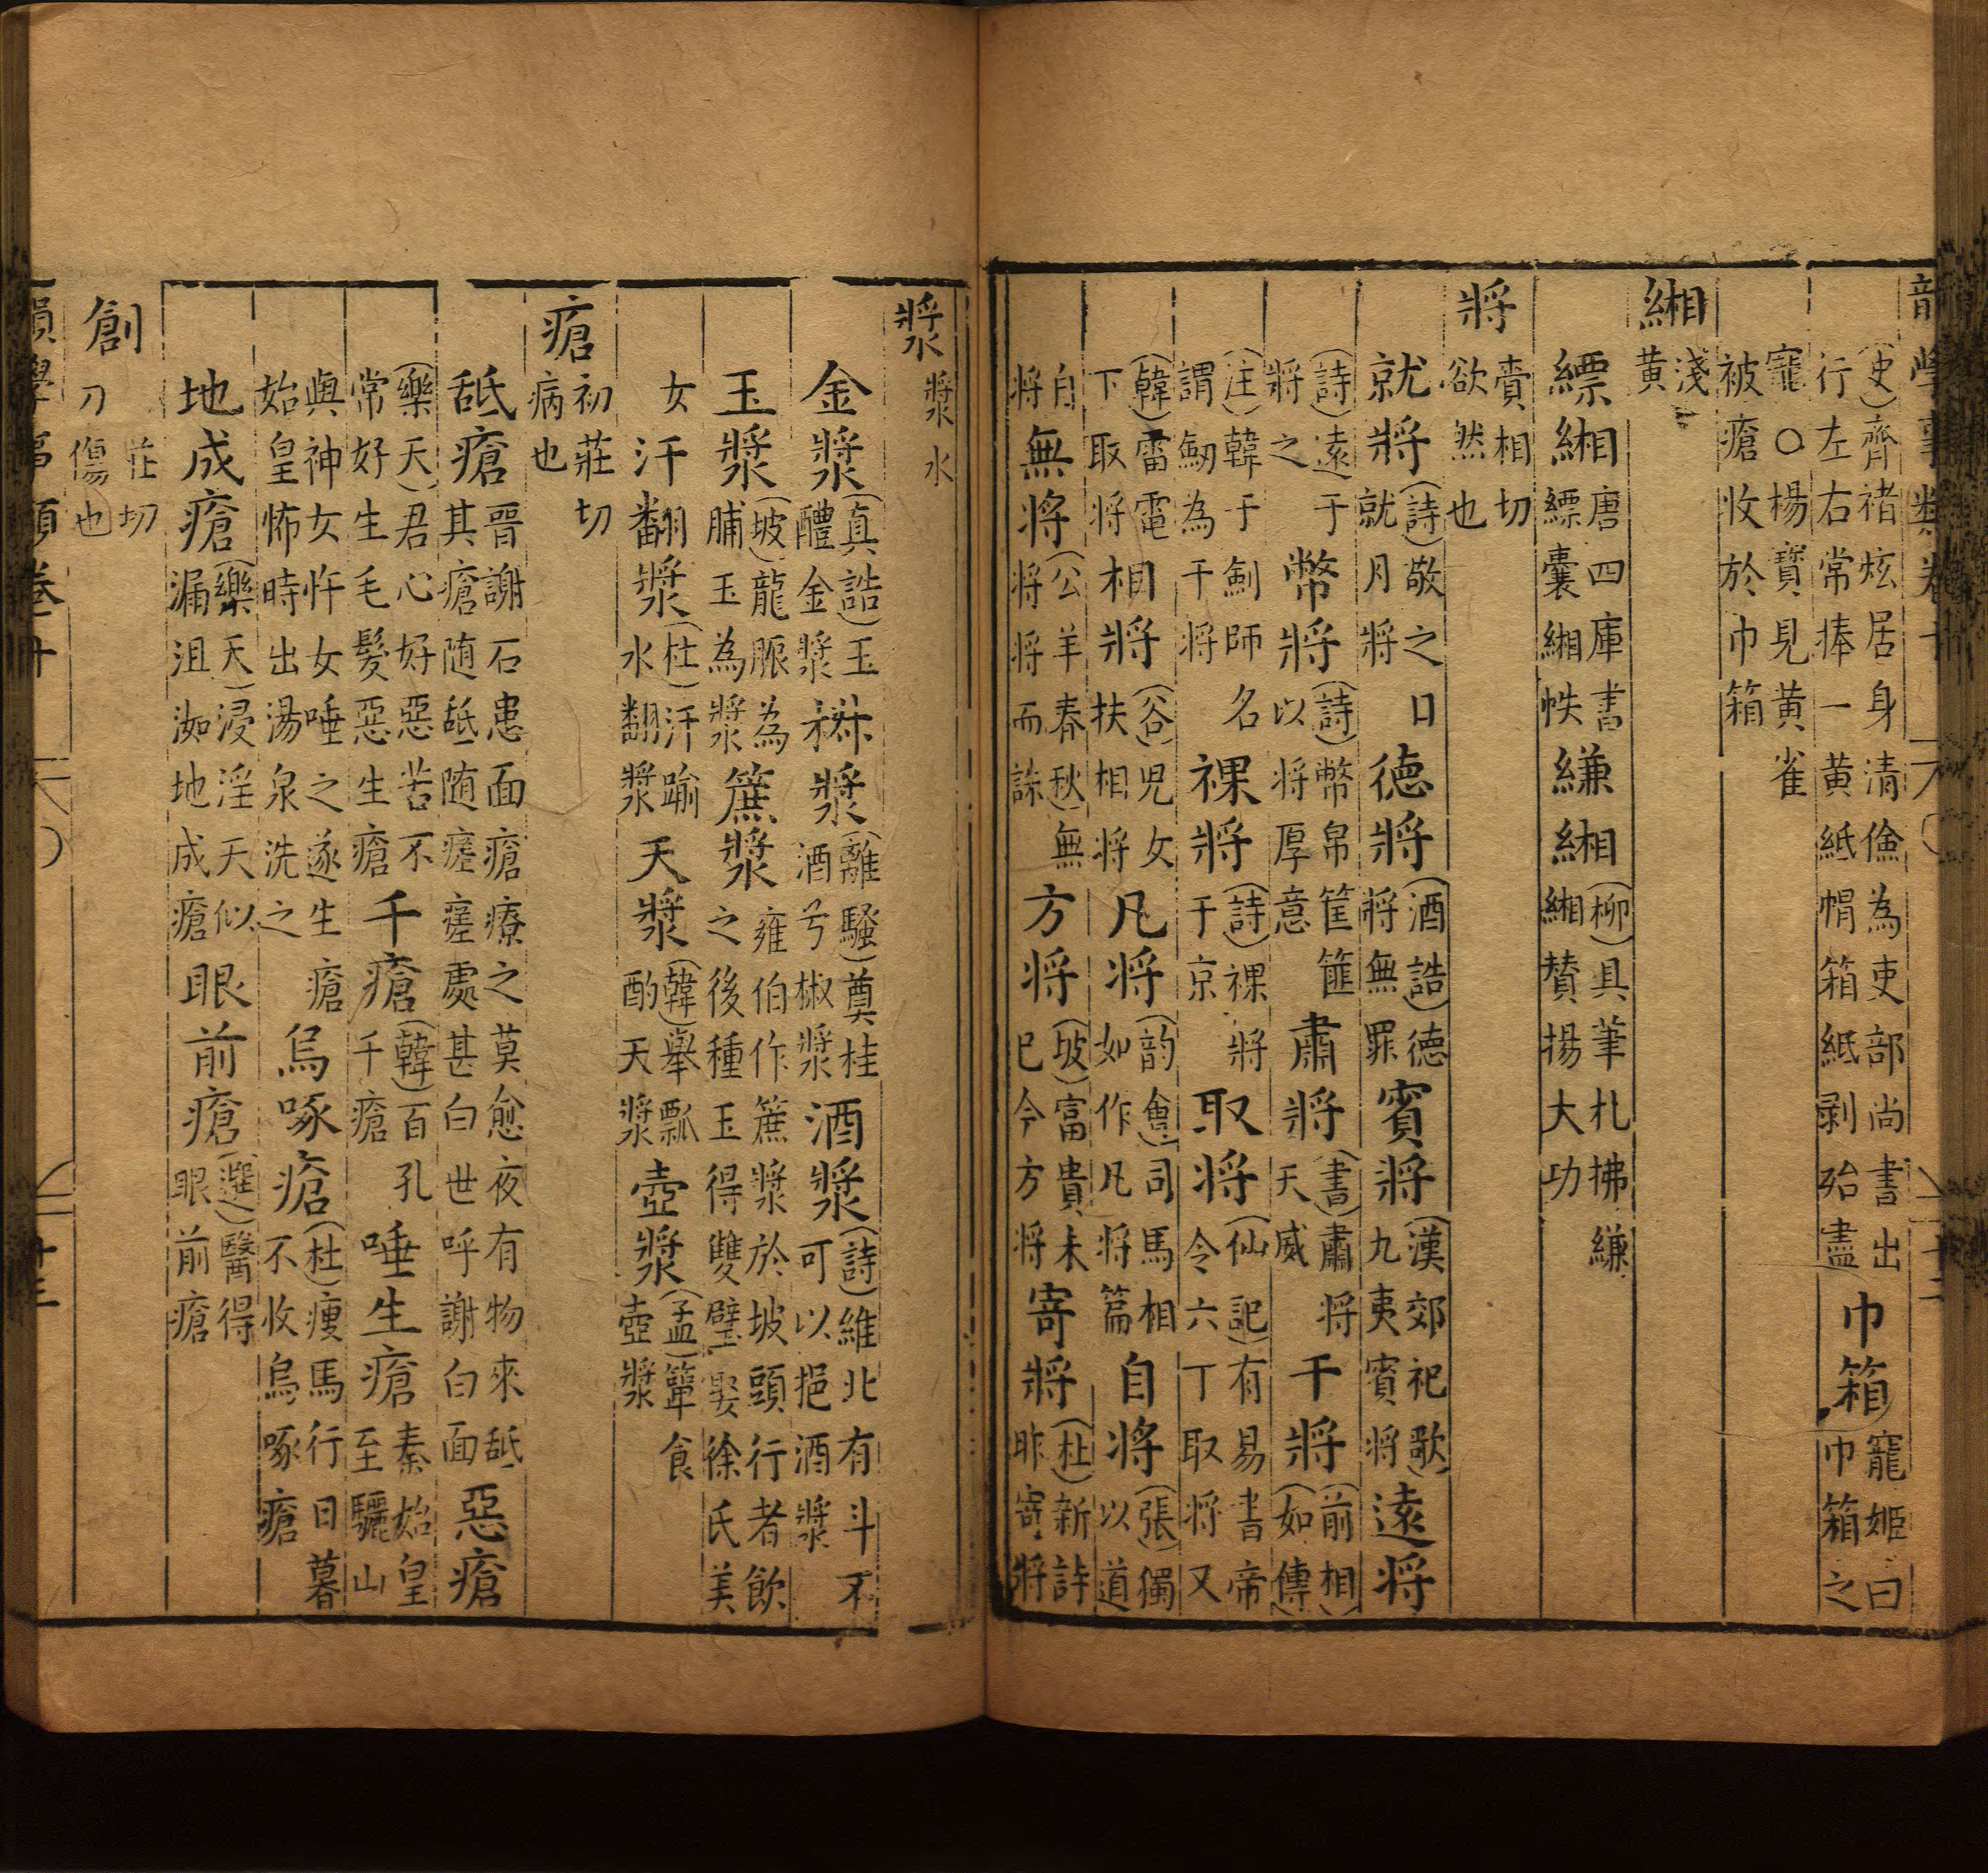 韻學事類卷十
(史)齊褚炫居身清儉為吏部尚書出行左右常捧一黃紙帽箱紙剥殆盡巾箱寵姬曰巾箱之
寵○楊寶見黃雀被瘡收於巾箱
緗淺黃
縹緗唐四庫書縹囊緗帙縑緗(柳)具筆札拂縑緗賛揚大功
將賫相切欲然也
就將(詩)敬之日就月將德將(酒誥)德將無罪賓將(漢郊祀歌)九夷賓將遠將
(詩)遠于將之幣將(詩)幣帛筐篚以將厚意肅將(書)肅將天威干將(前相如傳)
(注)韓于劍師名謂劒為干將祼將(詩)祼將于京取將(仙記)有易書帝令六丁取將又
(韓)雷電下取將相將(谷)兒女扶相將凡將(韵會)司馬相如作凡將篇自將(張)獨以道
自將無將(公羊春秋)無將將而誅方將(坡)富貴未已今方將寄將(杜)新詩昨寄將
漿漿水
金漿(真誥)玉醴金漿椒漿(離騷)奠桂酒兮椒漿酒漿(詩)維北有斗不可以挹酒漿
玉漿(坡)龍脤為脯玉為漿蔗漿雍伯作蔗漿於坡頭行者飲之後種玉得雙璧娶徐氏美
女汗翻漿(杜)汗踰水翻漿天漿(韓)舉瓢酌天漿壺漿(孟)簞食壺漿
瘡初莊切病也
舐瘡晉謝石患面瘡療之莫愈夜有物來舐其瘡随舐随瘥瘥處甚白世呼謝白面惡瘡
(樂天)君心好惡苦不常好生毛髮惡生瘡千瘡(韓)百孔千瘡唾生瘡秦始皇至驪山
與神女忤女唾之遂生瘡始皇怖時出湯泉洗之烏啄瘡(杜)瘦馬行日暮不收烏啄瘡
地成瘡(樂天)浸淫天似漏沮洳地成瘡眼前瘡(選)醫得眼前瘡
創莊切刀傷也
韻學事類卷十